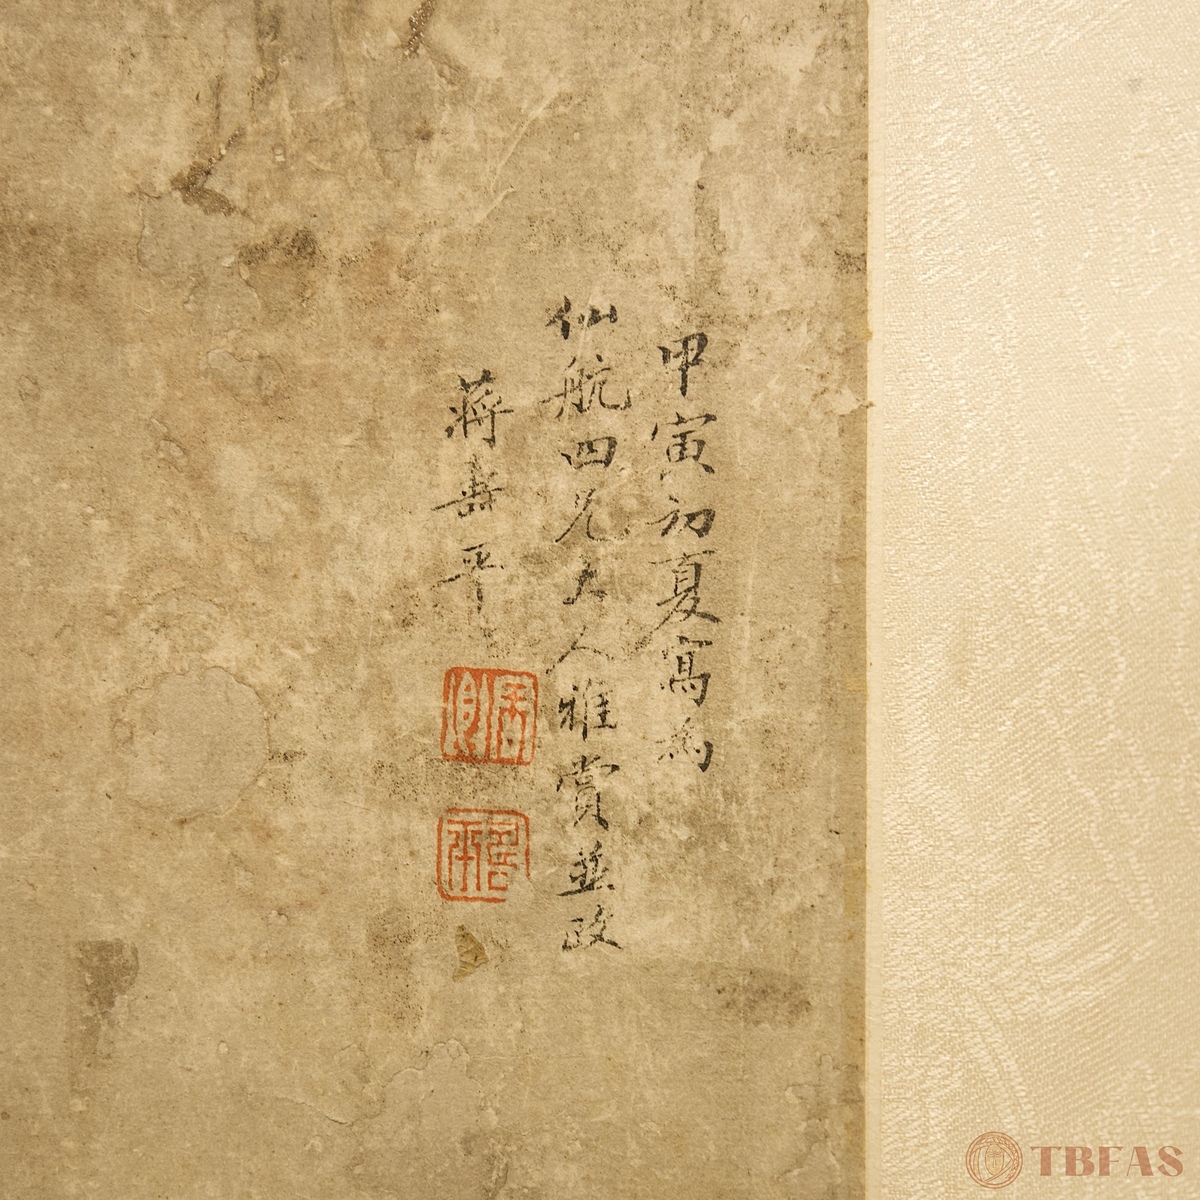 甲寅初夏寫爲
仙航四兄大人雅賞並政
蔣壽平
TBFAS